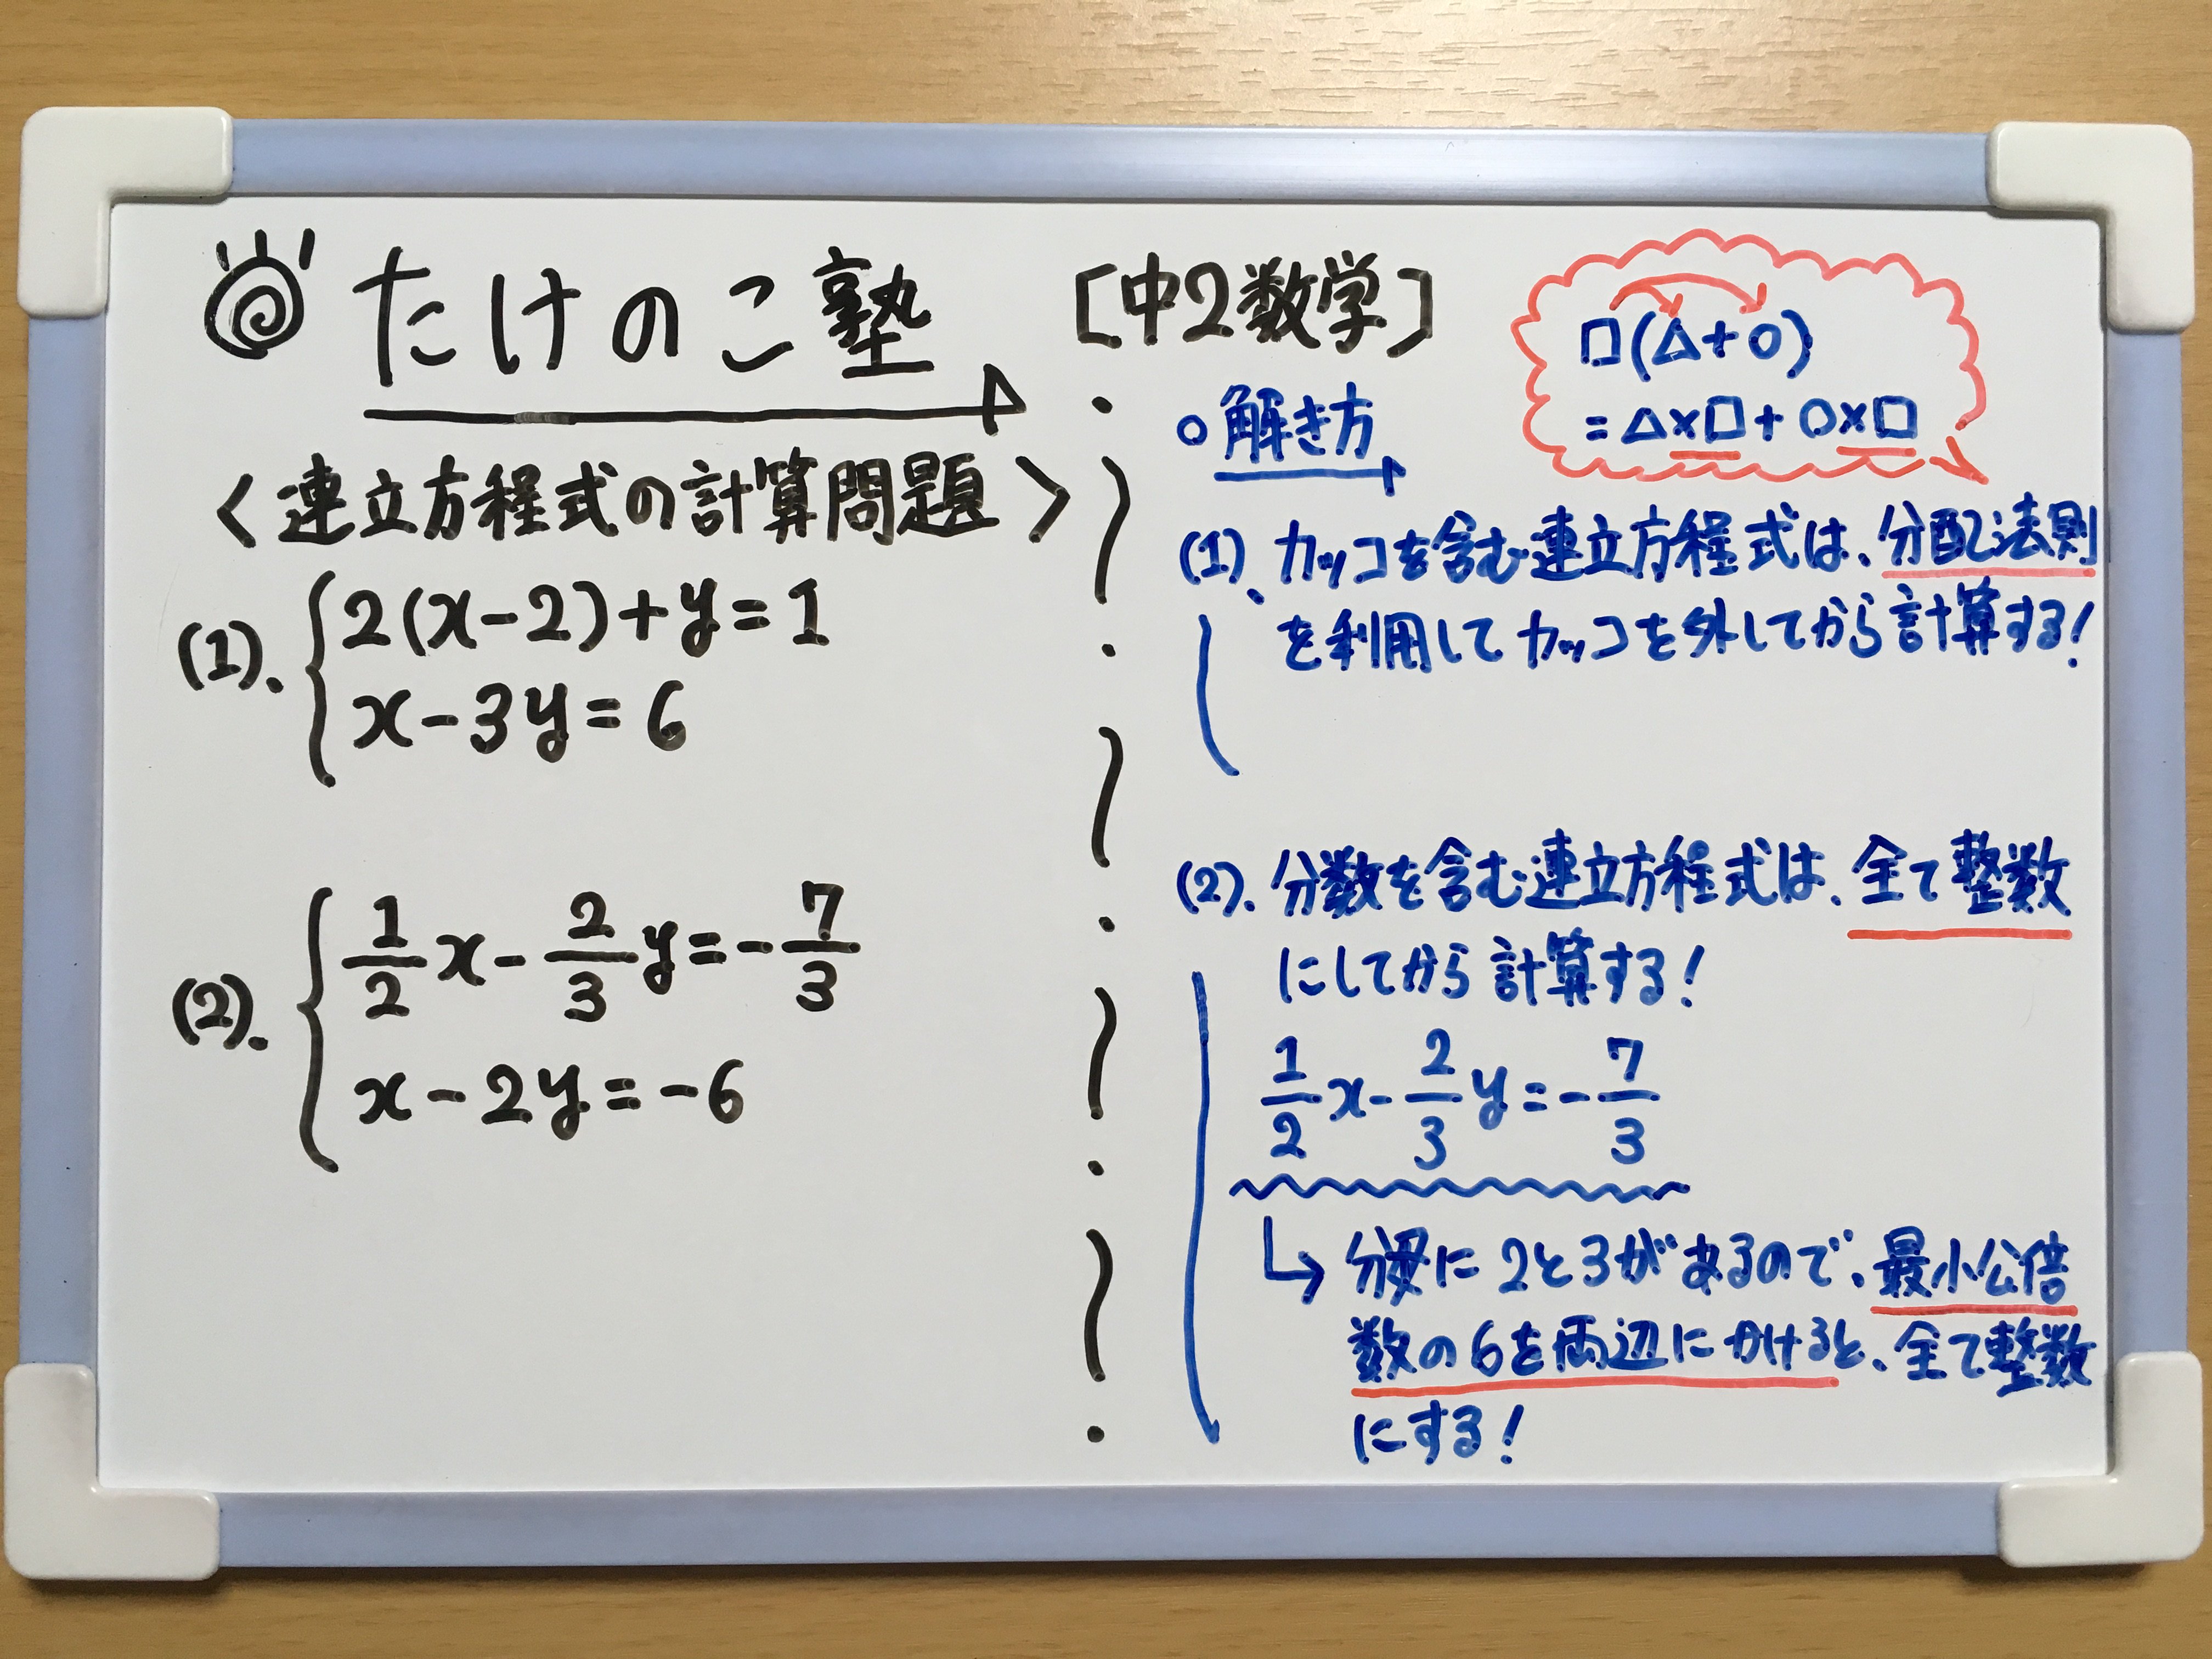 たけのこ塾
<連立方程式の計算問題>
(1). { 2(x-2)+y=1
x-3y=6
(2). { 1/2 x - 2/3 y = - 7/3
x-2y=-6
[中2数学]
□(△+○)
=△×□+○×□
○解き方
(1)、カッコを含む連立方程式は、分配法則
を利用してカッコを外してから計算する!
(2). 分数を含む連立方程式は、全て整数
にしてから計算する!
1/2 x - 2/3 y = - 7/3
↳ 分母に2と3があるので、最小公倍
数の6を両辺にかけると、全て整数
にする!